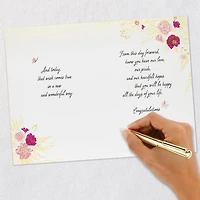 And today,
that wish comes true
in a new
and wonderful way.
From this day forward,
know you have our love,
our pride,
and our heartfelt hopes
that you will be happy
all the days of your life.
Congratulations